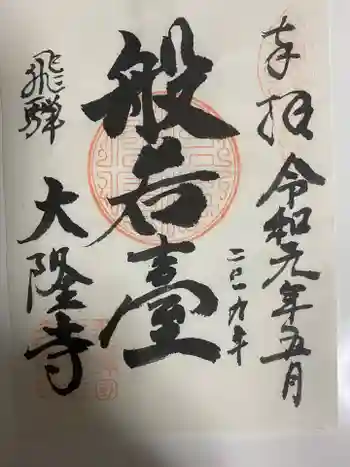 奉拝
令和元年五月
般若臺
飛騨
大隆寺